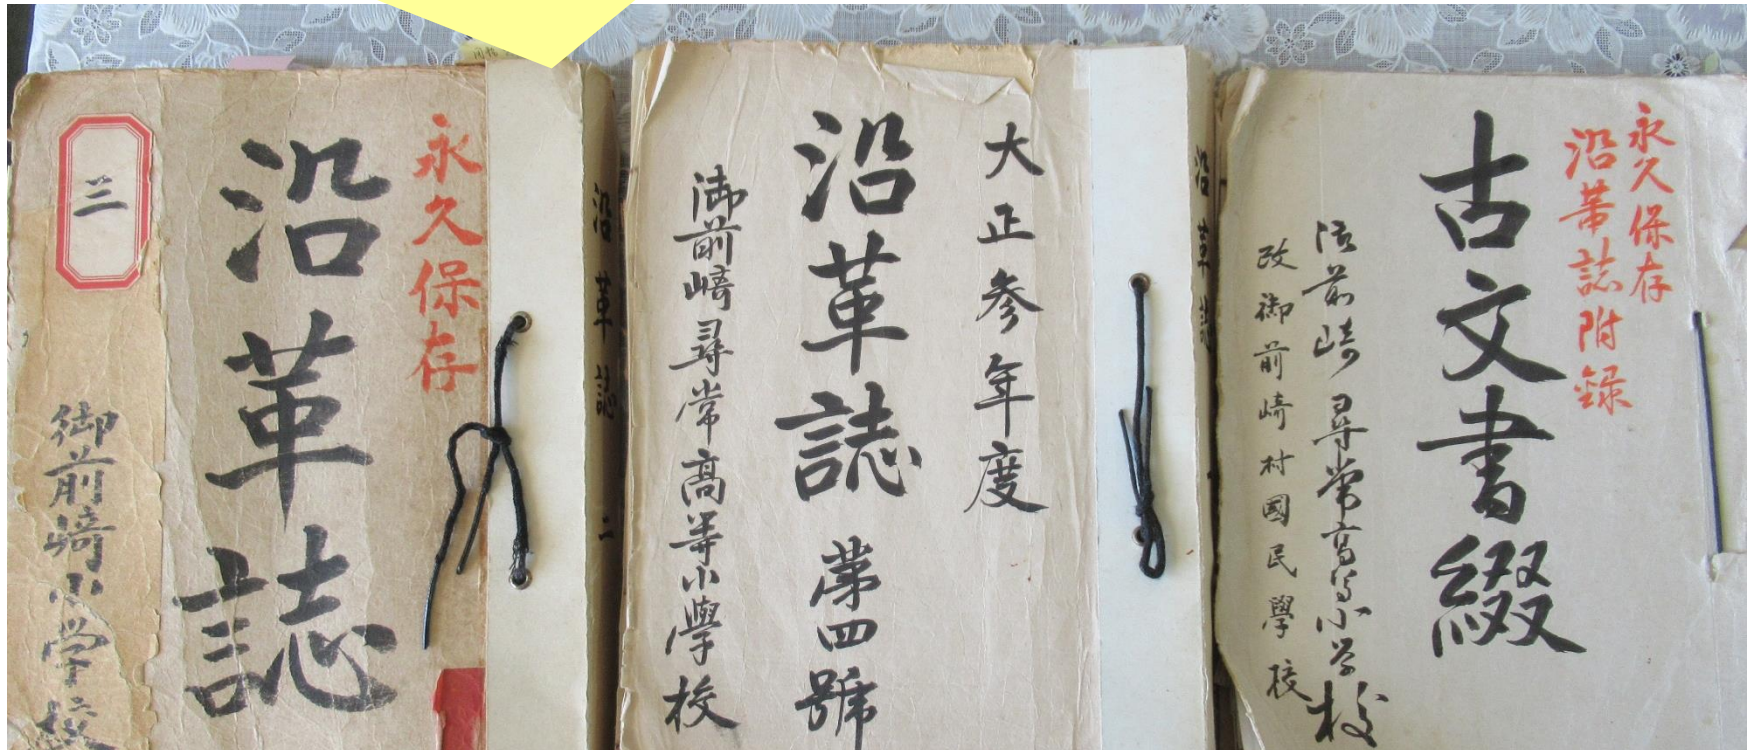 永久保存
沿革誌
三
御前崎小学校
沿革誌 二
大正参年度
沿革誌 第四號
御前崎尋常高等小學校
沿革誌
永久保存
沿革誌附録
古文書綴
御前崎尋常高等小学校
改御前崎村國民學校